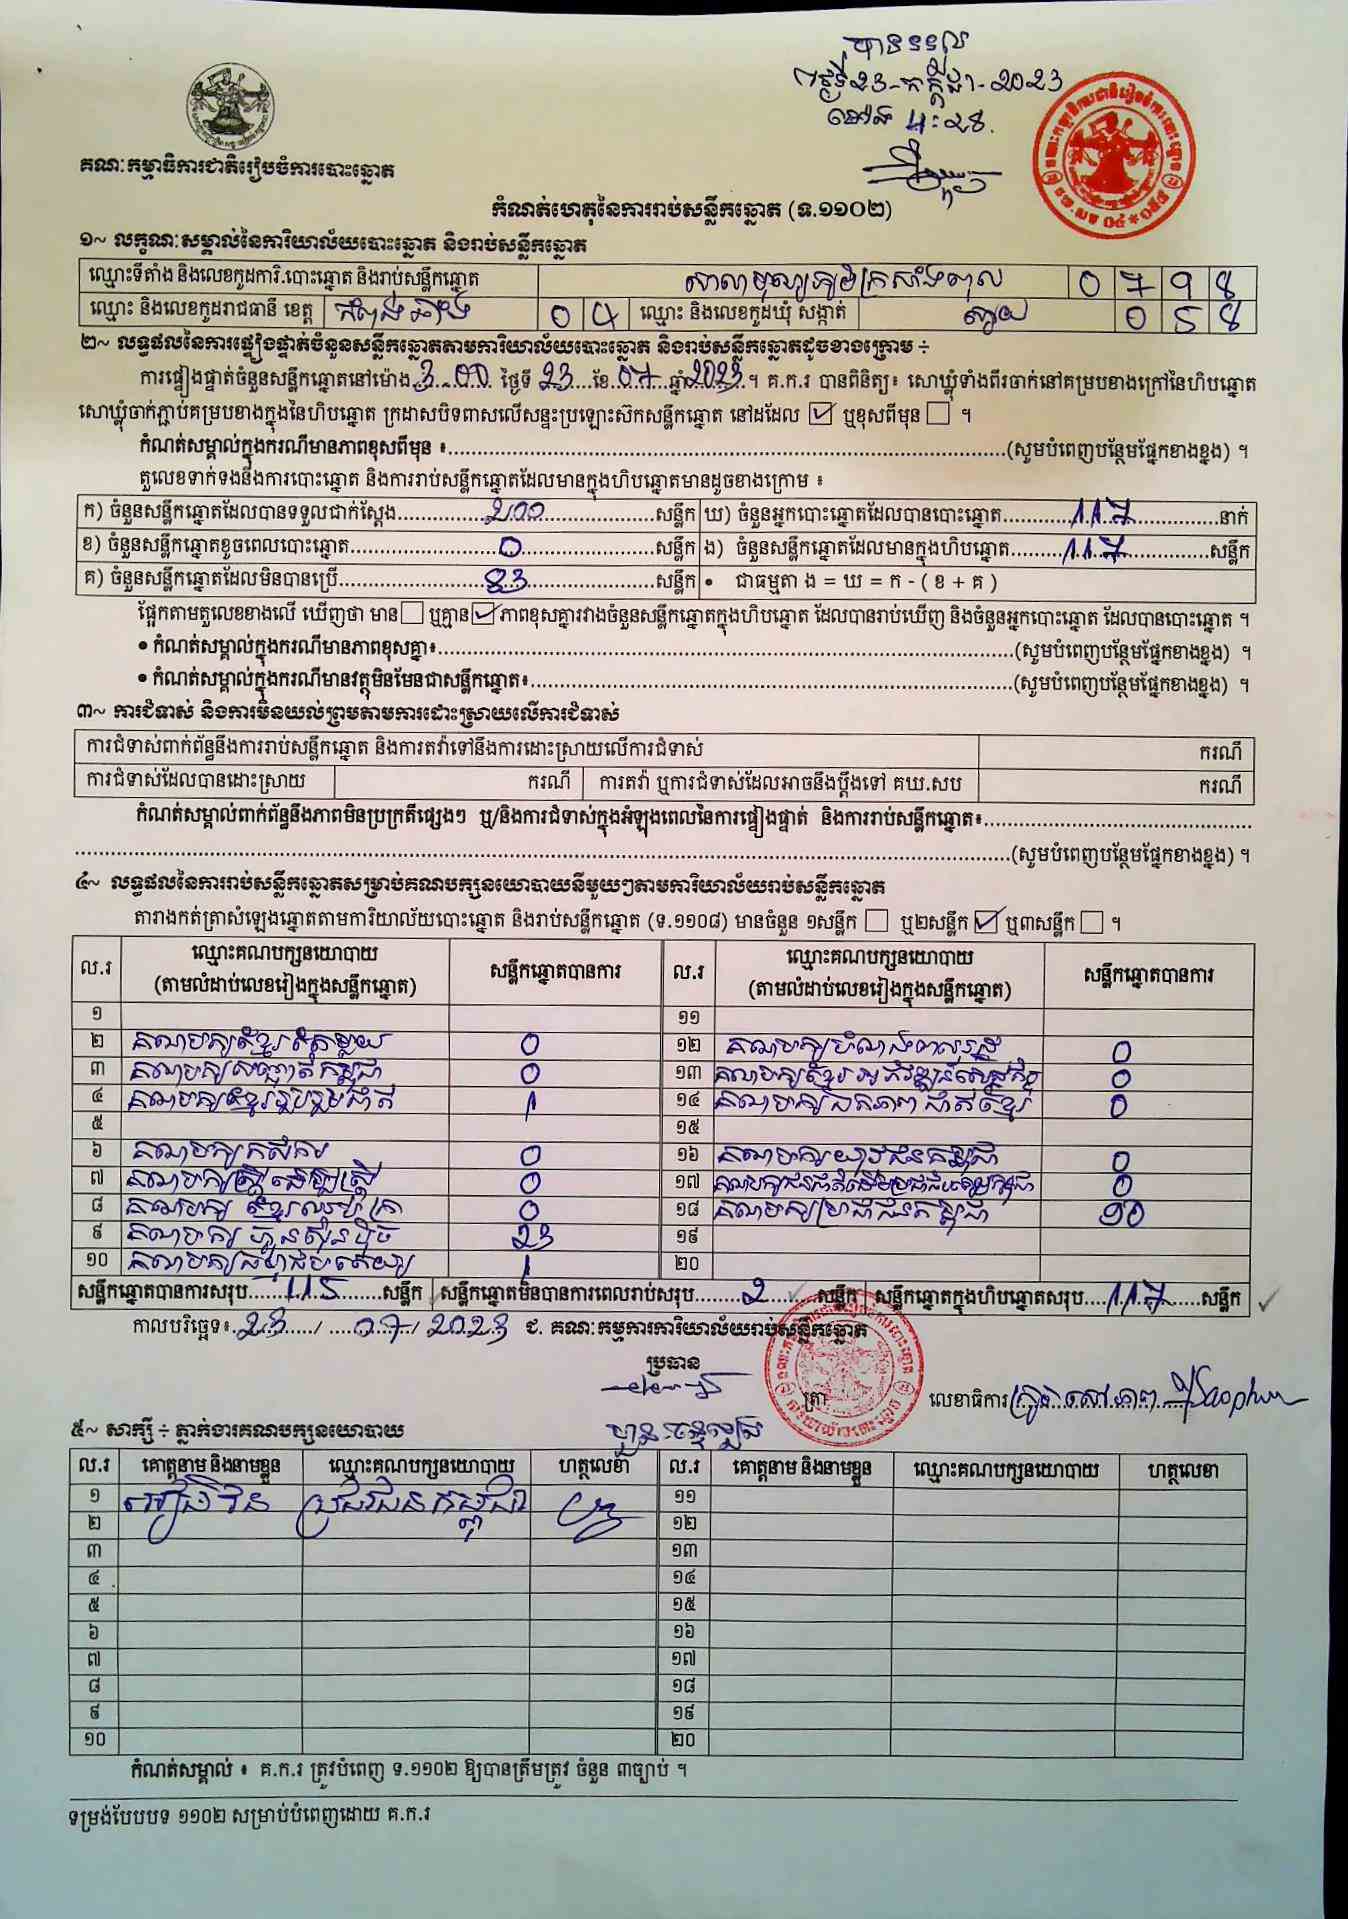 បានទទួល
ថ្ងៃទី23-កក្កដា-2023
ម៉ោង 4:28
គណៈកម្មាធិការជាតិរៀបចំការបោះឆ្នោត
កំណត់ហេតុនៃការរាប់សន្លឹកឆ្នោត (ទ.១១០២)
១~ លក្ខណៈសម្គាល់នៃការិយាល័យបោះឆ្នោត និងរាប់សន្លឹកឆ្នោត
ឈ្មោះទីតាំង និងលេខកូដការិ.បោះឆ្នោត និងរាប់សន្លឹកឆ្នោត 0 7 9 8
ឈ្មោះ និងលេខកូដរាជធានី ខេត្ត កំពង់ឆ្នាំង 0 4 ឈ្មោះ និងលេខកូដឃុំ សង្កាត់ 0 5 8
២~ លទ្ធផលនៃការផ្ទៀងផ្ទាត់ចំនួនសន្លឹកឆ្នោតតាមការិយាល័យបោះឆ្នោត និងរាប់សន្លឹកឆ្នោតដូចខាងក្រោម ÷
ការផ្ទៀងផ្ទាត់ចំនួនសន្លឹកឆ្នោតនៅម៉ោង 3:00 ថ្ងៃទី 23 ខែ 07 ឆ្នាំ 2023 ។ គ.ក.រ បានពិនិត្យ៖ សោឃ្លុំទាំងពីរចាក់នៅគម្របខាងក្រៅនៃហិបឆ្នោត
សោឃ្លុំចាក់ភ្ជាប់គម្របខាងក្នុងនៃហិបឆ្នោត ក្រដាសបិទពាសលើសន្ទះប្រឡោះស៊កសន្លឹកឆ្នោត នៅដដែល ☑ ឬខុសពីមុន ☐ ។
កំណត់សម្គាល់ក្នុងករណីមានភាពខុសពីមុន ៖..........(សូមបំពេញបន្ថែមផ្នែកខាងខ្នង) ។
តួលេខទាក់ទងនឹងការបោះឆ្នោត និងការរាប់សន្លឹកឆ្នោតដែលមានក្នុងហិបឆ្នោតមានដូចខាងក្រោម ៖
ក) ចំនួនសន្លឹកឆ្នោតដែលបានទទួលជាក់ស្តែង 200 សន្លឹក ឃ) ចំនួនអ្នកបោះឆ្នោតដែលបានបោះឆ្នោត 117 នាក់
ខ) ចំនួនសន្លឹកឆ្នោតខូចពេលបោះឆ្នោត 0 សន្លឹក ង) ចំនួនសន្លឹកឆ្នោតដែលមានក្នុងហិបឆ្នោត 117 សន្លឹក
គ) ចំនួនសន្លឹកឆ្នោតដែលមិនបានប្រើ 83 សន្លឹក • ជាធម្មតា ង = ឃ = ក - ( ខ + គ )
ផ្អែកតាមតួលេខខាងលើ ឃើញថា មាន ☐ ឬគ្មាន ☑ ភាពខុសគ្នារវាងចំនួនសន្លឹកឆ្នោតក្នុងហិបឆ្នោត ដែលបានរាប់ឃើញ និងចំនួនអ្នកបោះឆ្នោត ដែលបានបោះឆ្នោត ។
• កំណត់សម្គាល់ក្នុងករណីមានភាពខុសគ្នា៖..........(សូមបំពេញបន្ថែមផ្នែកខាងខ្នង) ។
• កំណត់សម្គាល់ក្នុងករណីមានវត្ថុមិនមែនជាសន្លឹកឆ្នោត៖..........(សូមបំពេញបន្ថែមផ្នែកខាងខ្នង) ។
៣~ ការជំទាស់ និងការមិនយល់ព្រមតាមការដោះស្រាយលើការជំទាស់
ការជំទាស់ពាក់ព័ន្ធនឹងការរាប់សន្លឹកឆ្នោត និងការតវ៉ាទៅនឹងការដោះស្រាយលើការជំទាស់ ករណី
ការជំទាស់ដែលបានដោះស្រាយ ករណី ការតវ៉ា ឬការជំទាស់ដែលអាចនឹងប្តឹងទៅ គឃ.សប ករណី
កំណត់សម្គាល់ពាក់ព័ន្ធនឹងភាពមិនប្រក្រតីផ្សេងៗ ឬ/និងការជំទាស់ក្នុងអំឡុងពេលនៃការផ្ទៀងផ្ទាត់ និងការរាប់សន្លឹកឆ្នោត៖..........
..........(សូមបំពេញបន្ថែមផ្នែកខាងខ្នង) ។
៤~ លទ្ធផលនៃការរាប់សន្លឹកឆ្នោតសម្រាប់គណបក្សនយោបាយនីមួយៗតាមការិយាល័យរាប់សន្លឹកឆ្នោត
តារាងកត់ត្រាសំឡេងឆ្នោតតាមការិយាល័យបោះឆ្នោត និងរាប់សន្លឹកឆ្នោត (ទ.១១០៨) មានចំនួន ១សន្លឹក ☐ ឬ២សន្លឹក ☑ ឬ៣សន្លឹក ☐ ។
ល.រ ឈ្មោះគណបក្សនយោបាយ (តាមលំដាប់លេខរៀងក្នុងសន្លឹកឆ្នោត) សន្លឹកឆ្នោតបានការ ល.រ ឈ្មោះគណបក្សនយោបាយ (តាមលំដាប់លេខរៀងក្នុងសន្លឹកឆ្នោត) សន្លឹកឆ្នោតបានការ
១ ១១
២ គណបក្សខ្មែរតែមួយ 0 ១២ គណបក្ស 0
៣ គណបក្សសញ្ជាតិកម្ពុជា 0 ១៣ គណបក្សខ្មែរអភិវឌ្ឍន៍សេដ្ឋកិច្ច 0
៤ គណបក្សខ្មែររួបរួមជាតិ 1 ១៤ គណបក្សឯកភាពជាតិខ្មែរ 0
៥ ១៥
៦ គណបក្សកសិករ 0 ១៦ គណបក្សយុវជនកម្ពុជា 0
៧ គណបក្សស្ត្រីដើម្បីស្ត្រី 0 ១៧ គណបក្សជនជាតិដើមប្រជាធិបតេយ្យកម្ពុជា 0
៨ គណបក្សខ្មែរឈប់ក្រ 0 ១៨ គណបក្សប្រជាជនកម្ពុជា 90
៩ គណបក្សហ្វ៊ុនស៊ិនប៉ិច 23 ១៩
១០ គណបក្សធម្មាធិបតេយ្យ 1 ២០
សន្លឹកឆ្នោតបានការសរុប 115 សន្លឹក សន្លឹកឆ្នោតមិនបានការពេលរាប់សរុប 2 សន្លឹក សន្លឹកឆ្នោតក្នុងហិបឆ្នោតសរុប 117 សន្លឹក
កាលបរិច្ឆេទ៖ 23 / 07 / 2023 ជ. គណៈកម្មការការិយាល័យរាប់សន្លឹកឆ្នោត
ប្រធាន
ត្រា លេខាធិការ
៥~ សាក្សី ÷ ភ្នាក់ងារគណបក្សនយោបាយ
ល.រ គោត្តនាម និងនាមខ្លួន ឈ្មោះគណបក្សនយោបាយ ហត្ថលេខា ល.រ គោត្តនាម និងនាមខ្លួន ឈ្មោះគណបក្សនយោបាយ ហត្ថលេខា
១ ប្រជាជនកម្ពុជា ១១
២ ១២
៣ ១៣
៤ ១៤
៥ ១៥
៦ ១៦
៧ ១៧
៨ ១៨
៩ ១៩
១០ ២០
កំណត់សម្គាល់ ៖ គ.ក.រ ត្រូវបំពេញ ទ.១១០២ ឱ្យបានត្រឹមត្រូវ ចំនួន ៣ច្បាប់ ។
ទម្រង់បែបបទ ១១០២ សម្រាប់បំពេញដោយ គ.ក.រ